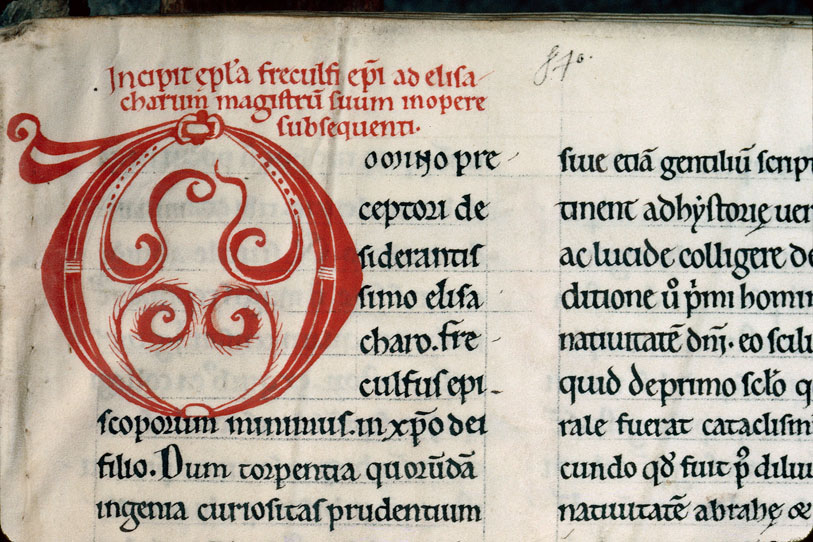 Incipit ep̅l̅a freculfi ep̅i ad elisa-
charum magistrū suum in opere
subsequenti.
Domno pre
ceptori de
siderantis
simo elisa
charo. fre
culfus epi
scoporum minimus. in xp̅o dei
filio. Dum torpentia quorūdā
ingenia curiositas prudentium
siue etiā gentiliū scrip
tinent ad hẏstorię uer
ac lucide colligere de
ditione u̅ p̅mi homin
natiuitatē dn̅i. eo scili
quid de primo sc̅lo q
rale fuerat cataclism
cundo qđ fuit p̅ diluu
natiuitatē abrahę &